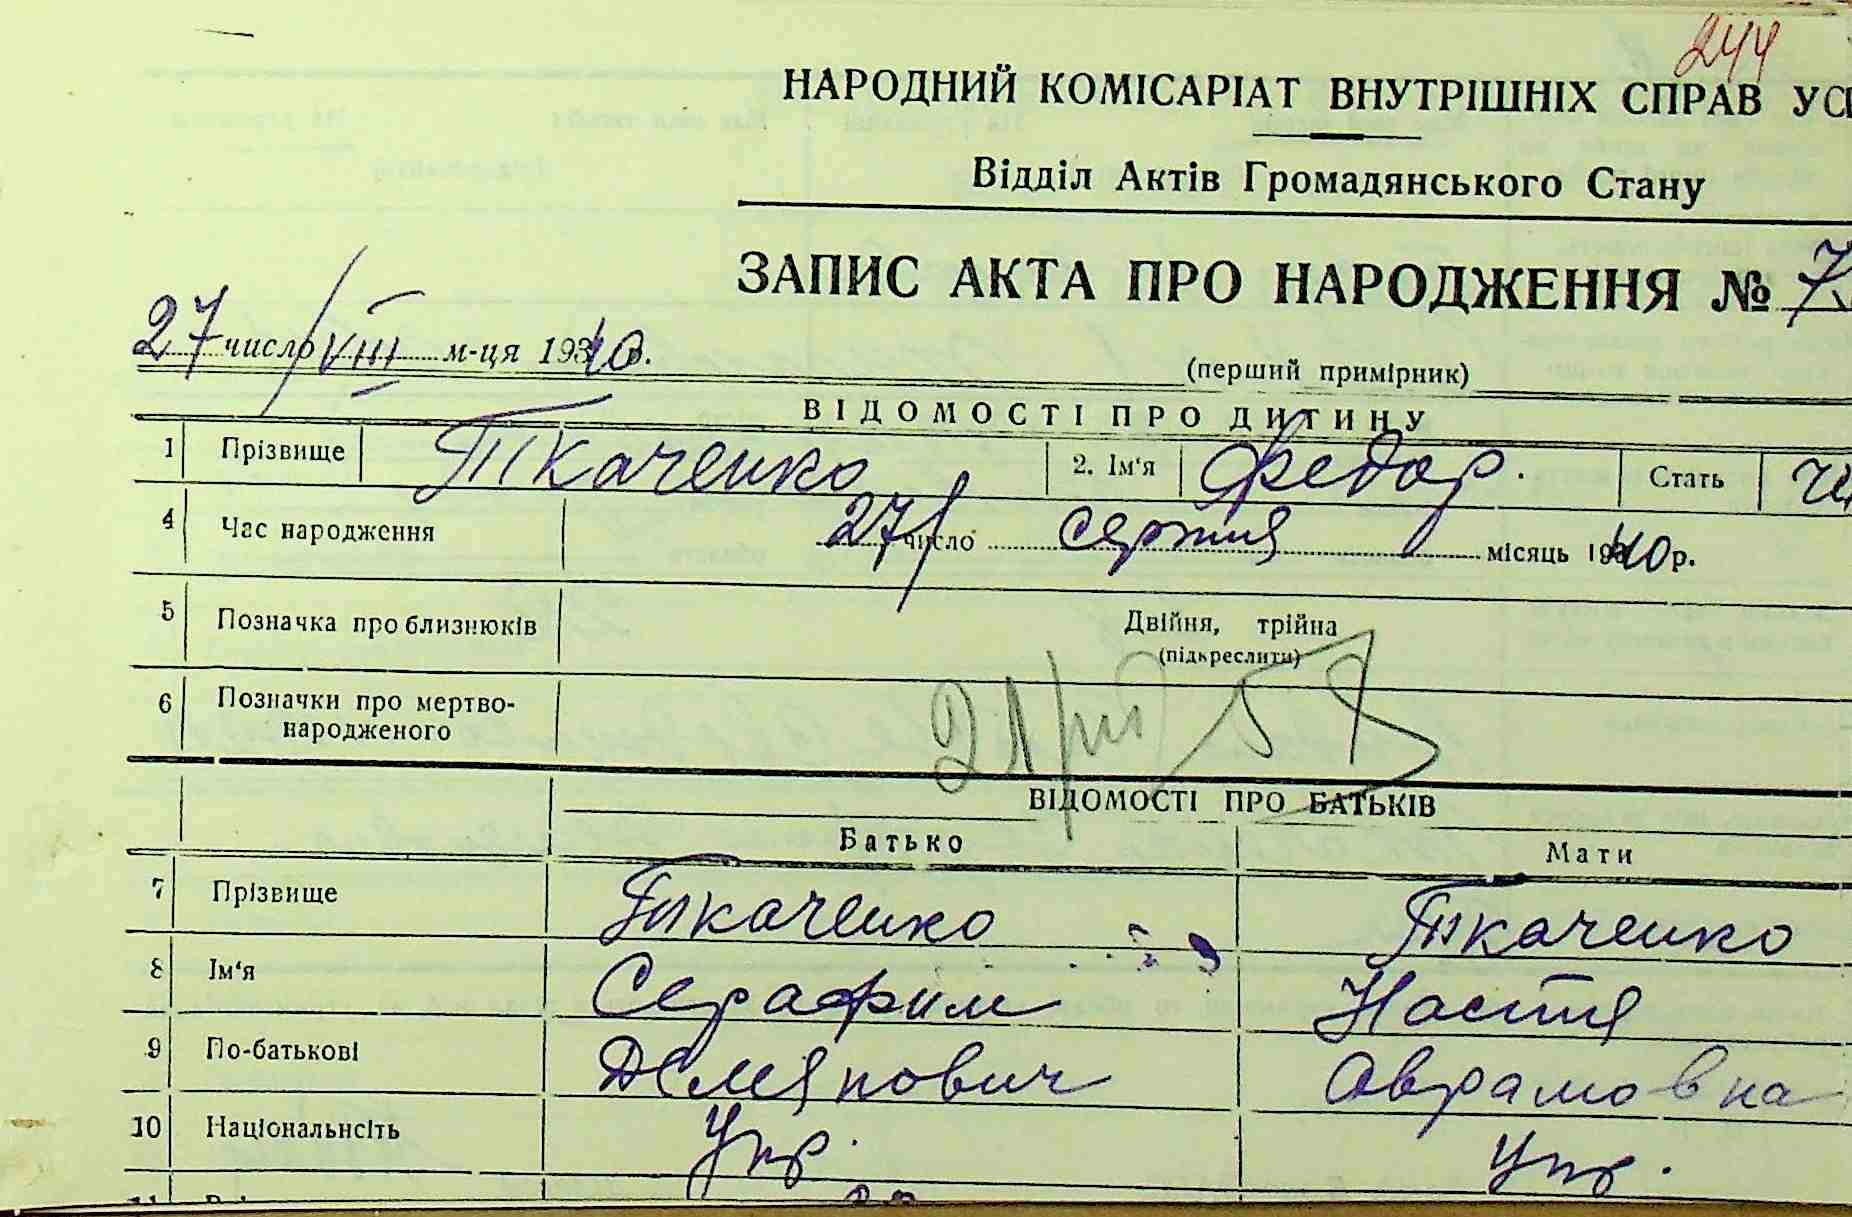 244
НАРОДНИЙ КОМІСАРІАТ ВНУТРІШНІХ СПРАВ
Відділ Актів Громадянського Стану
ЗАПИС АКТА ПРО НАРОДЖЕННЯ № 7
27 число VIII м-ця 1940 р.
(перший примірник)
ВІДОМОСТІ ПРО ДИТИНУ
1 Прізвище Ткаченко 2. Ім'я Федор. Стать
4 Час народження 27 число серпня місяць 1940 р.
5 Позначка про близнюків Двійня, трійна
(підкреслити)
6 Позначки про мертво-
народженого
ВІДОМОСТІ ПРО БАТЬКІВ
Батько Мати
7 Прізвище Ткаченко Ткаченко
8 Ім'я Серафим Настя
9 По-батькові Демянович Аврамовна
10 Національнсіть Укр. Укр.